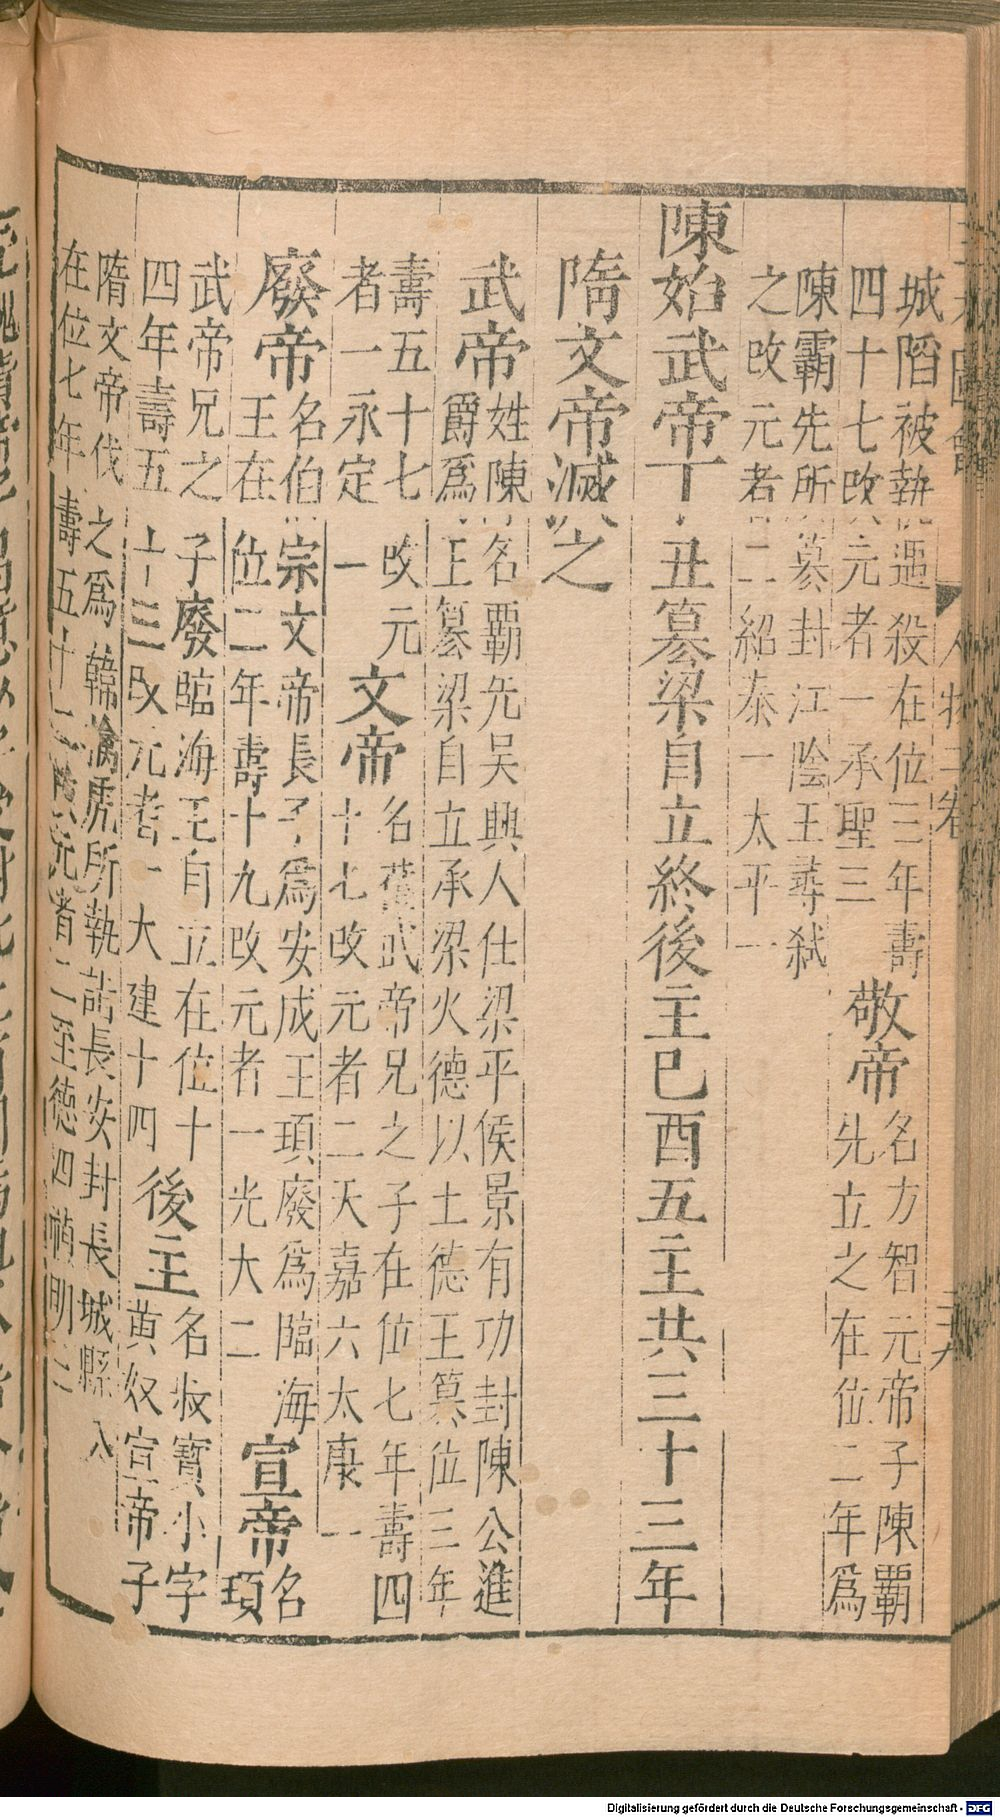 城陷被執遇殺在位三年壽
四十七改元者一承聖三
敬帝
名方智元帝子陳霸
先立之在位二年爲
陳霸先所篡封江陰王尋弑
之改元者二紹泰一太平一
陳始武帝丁丑篡梁自立終後主巳酉五主共三十三年
隋文帝滅之
武帝
姓陳名霸先吳興人仕梁平侯景有功封陳公進
爵爲王篡梁自立承梁火德以土德王篡位三年
壽五十七改元
者一永定一
文帝
名蒨武帝兄之子在位七年壽四
十七改元者二天嘉六太康一
廢帝
名伯宗文帝長子爲安成王頊廢爲臨海
王在位二年壽十九改元者一光大二
宣帝
名
頊
武帝兄之子廢臨海王自立在位十
四年壽五十三改元者一大建十四
後主
名叔寶小字
黃奴宣帝子
隋文帝伐之爲韓擒虎所執詣長安封長城縣
在位七年壽五十二改元者二至德四禎明二
人物二卷
Digitalisierung gefördert durch die Deutsche Forschungsgemeinschaft - DFG